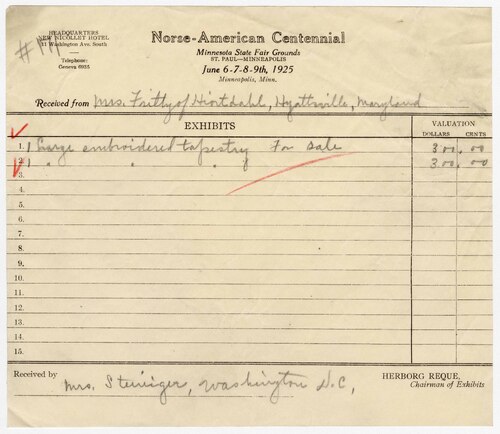 HEADQUARTERS
NEW NICOLLET HOTEL
31 Washington Ave. South
Telephone:
Geneva 6935
Norse-American Centennial
Minnesota State Fair Grounds
ST. PAUL—MINNEAPOLIS
June 6-7-8-9th, 1925
Minneapolis, Minn.
Received from Mrs. Frittyof Hiortdahl, Hyattsville, Maryland
EXHIBITS
VALUATION
DOLLARS CENTS
1. 1 Large embroidered tapestry For sale 300.00
2. 1 " " " 300.00
3.
4.
5.
6.
7.
8.
9.
10.
11.
12.
13.
14.
15.
Received by Mrs. Steiniger, Washington D.C,
HERBORG REQUE,
Chairman of Exhibits